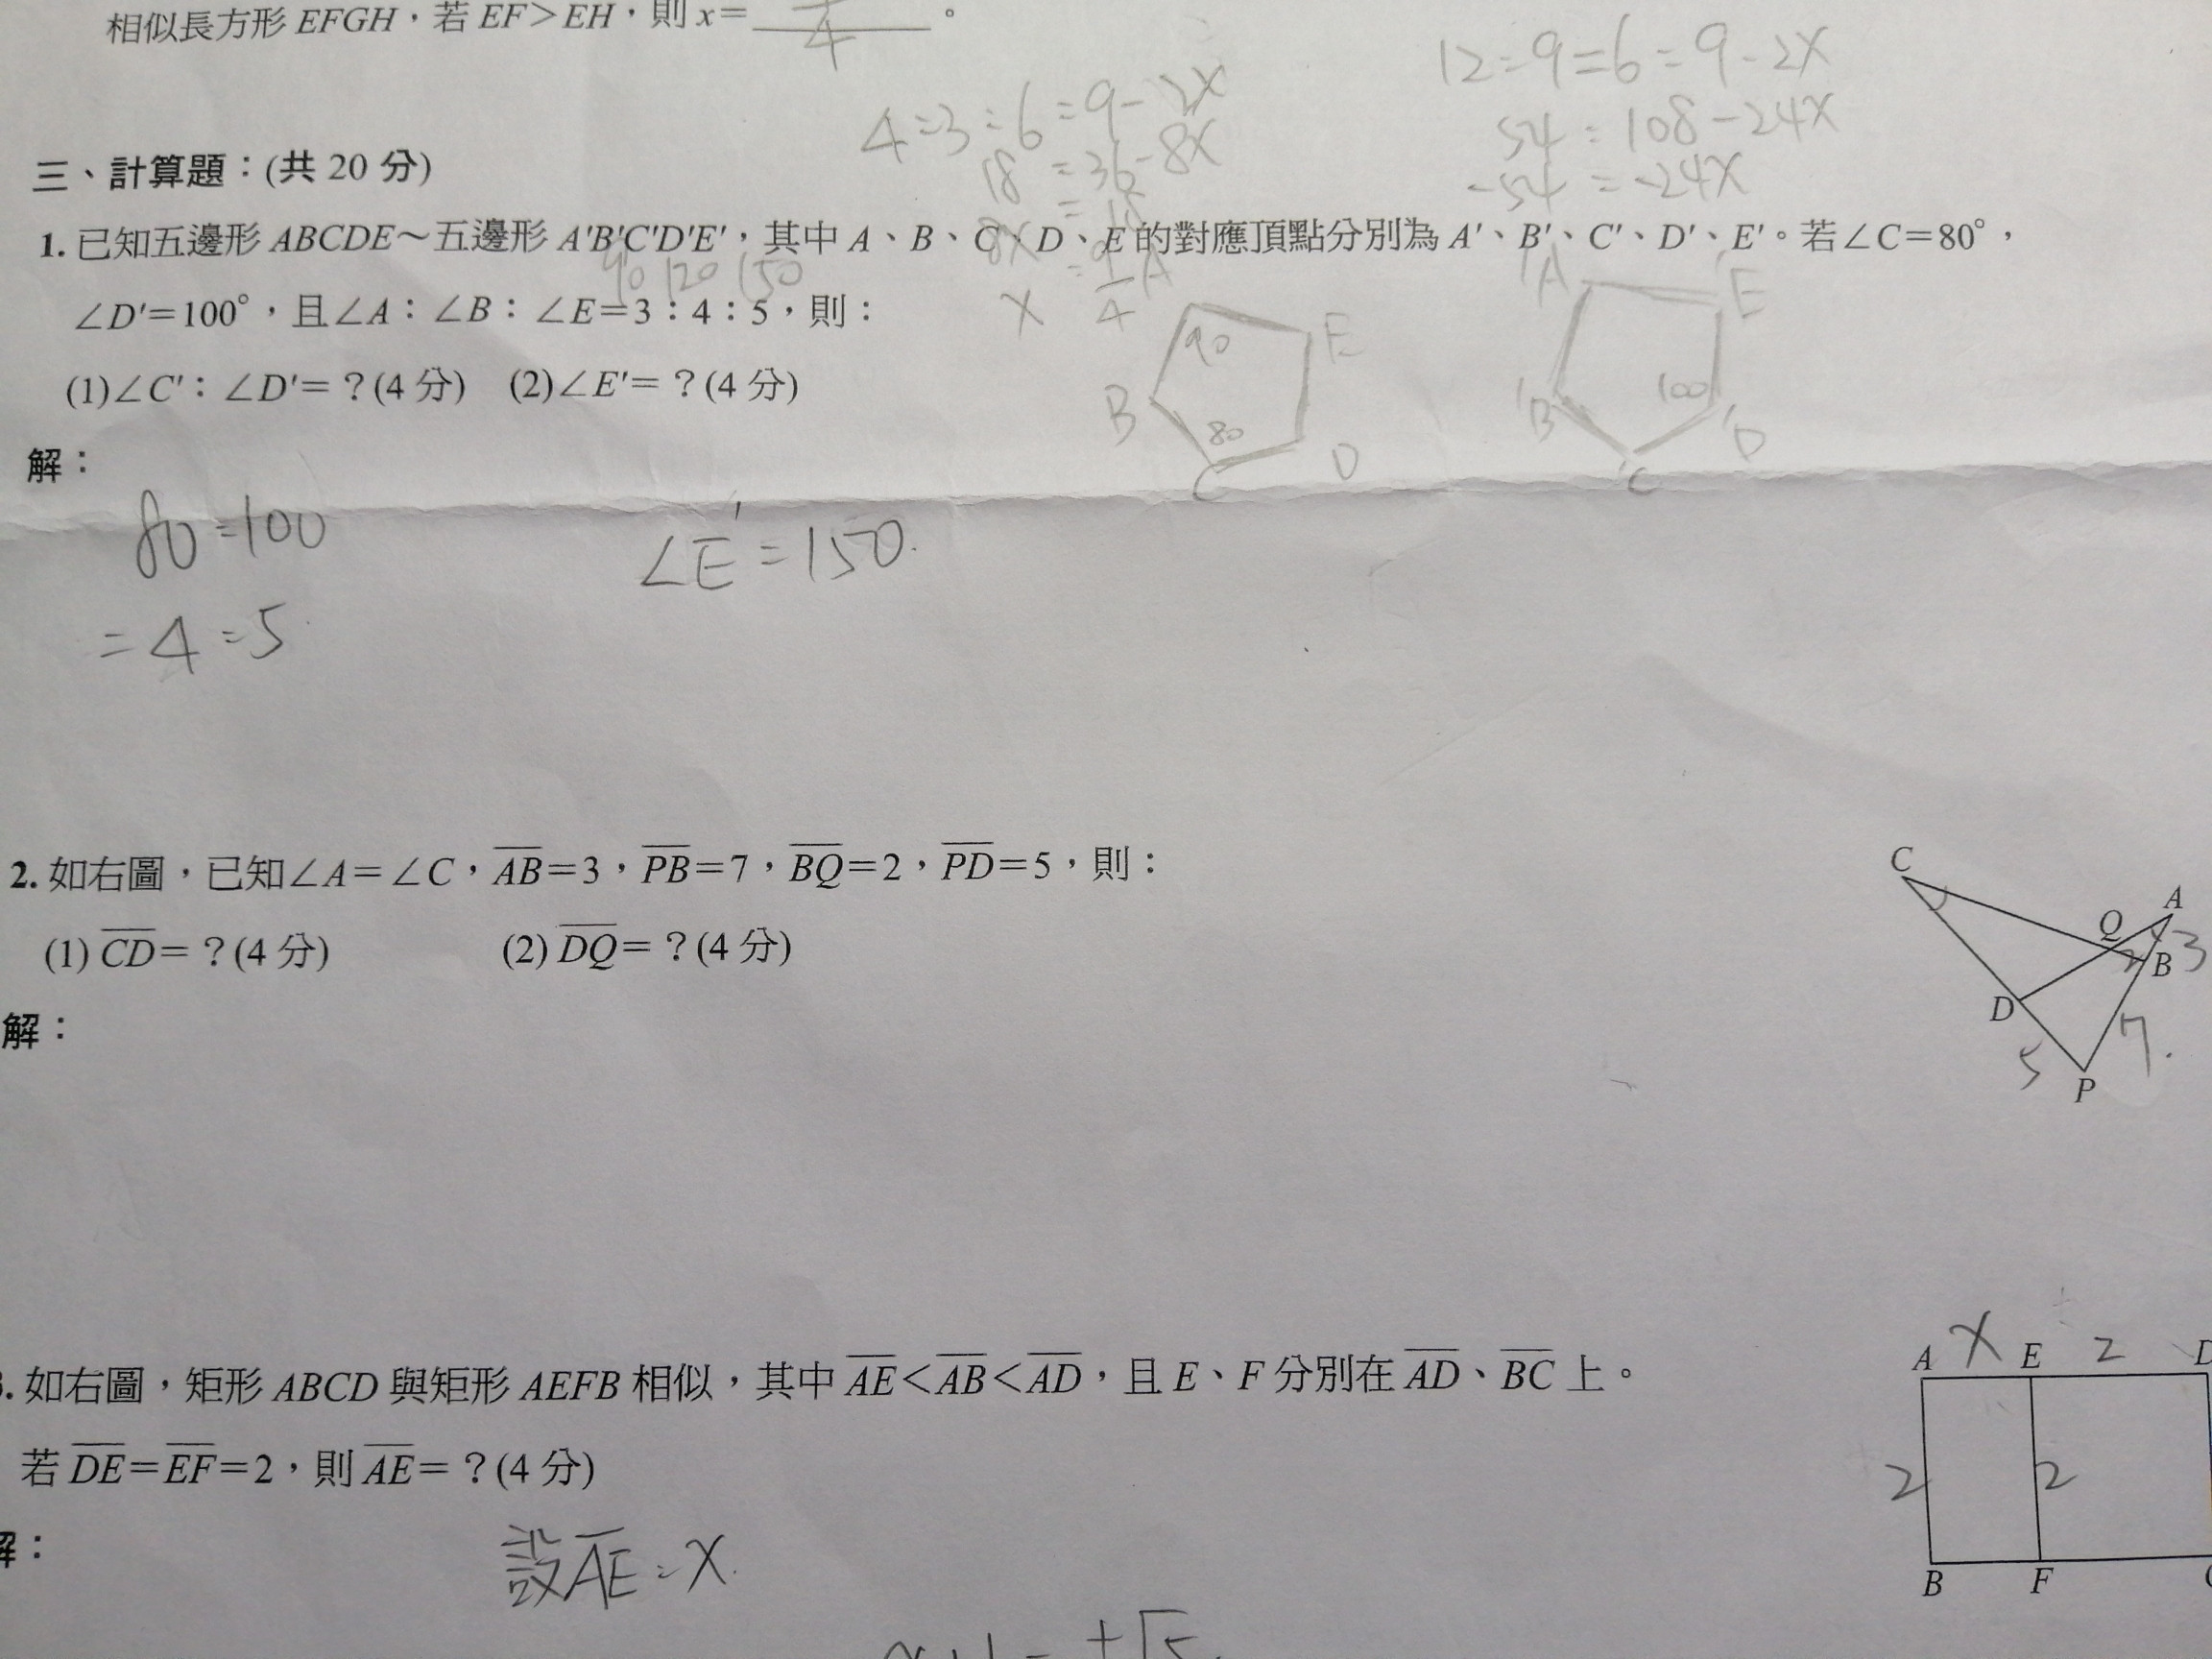 相似長方形 EFGH，若 EF＞EH，則 x＝ 4 。
12=9=6=9-2X
4=3=6=9-2X
54=108-24X
18=36-8X
-54=-24X
三、計算題：(共 20 分)
1. 已知五邊形 ABCDE～五邊形 A'B'C'D'E'，其中 A、B、C、D、E 的對應頂點分別為 A'、B'、C'、D'、E'。若∠C＝80°，
8X=18
90 120 150
∠D'＝100°，且∠A：∠B：∠E＝3：4：5，則：
X 9/4
A
90
E
B
80
C
D
'A
'E
'B
100
'D
'C
(1)∠C'：∠D'＝？(4 分) (2)∠E'＝？(4 分)
解：
80=100
∠E'=150.
=4=5
2. 如右圖，已知∠A＝∠C，AB＝3，PB＝7，BQ＝2，PD＝5，則：
(1) CD＝？(4 分) (2) DQ＝？(4 分)
解：
C
A
Q
3
2
B
D
7.
5
P
. 如右圖，矩形 ABCD 與矩形 AEFB 相似，其中 AE＜AB＜AD，且 E、F 分別在 AD、BC 上。
若 DE＝EF＝2，則 AE＝？(4 分)
A X E 2
2
2
B F
解：
設AE=X